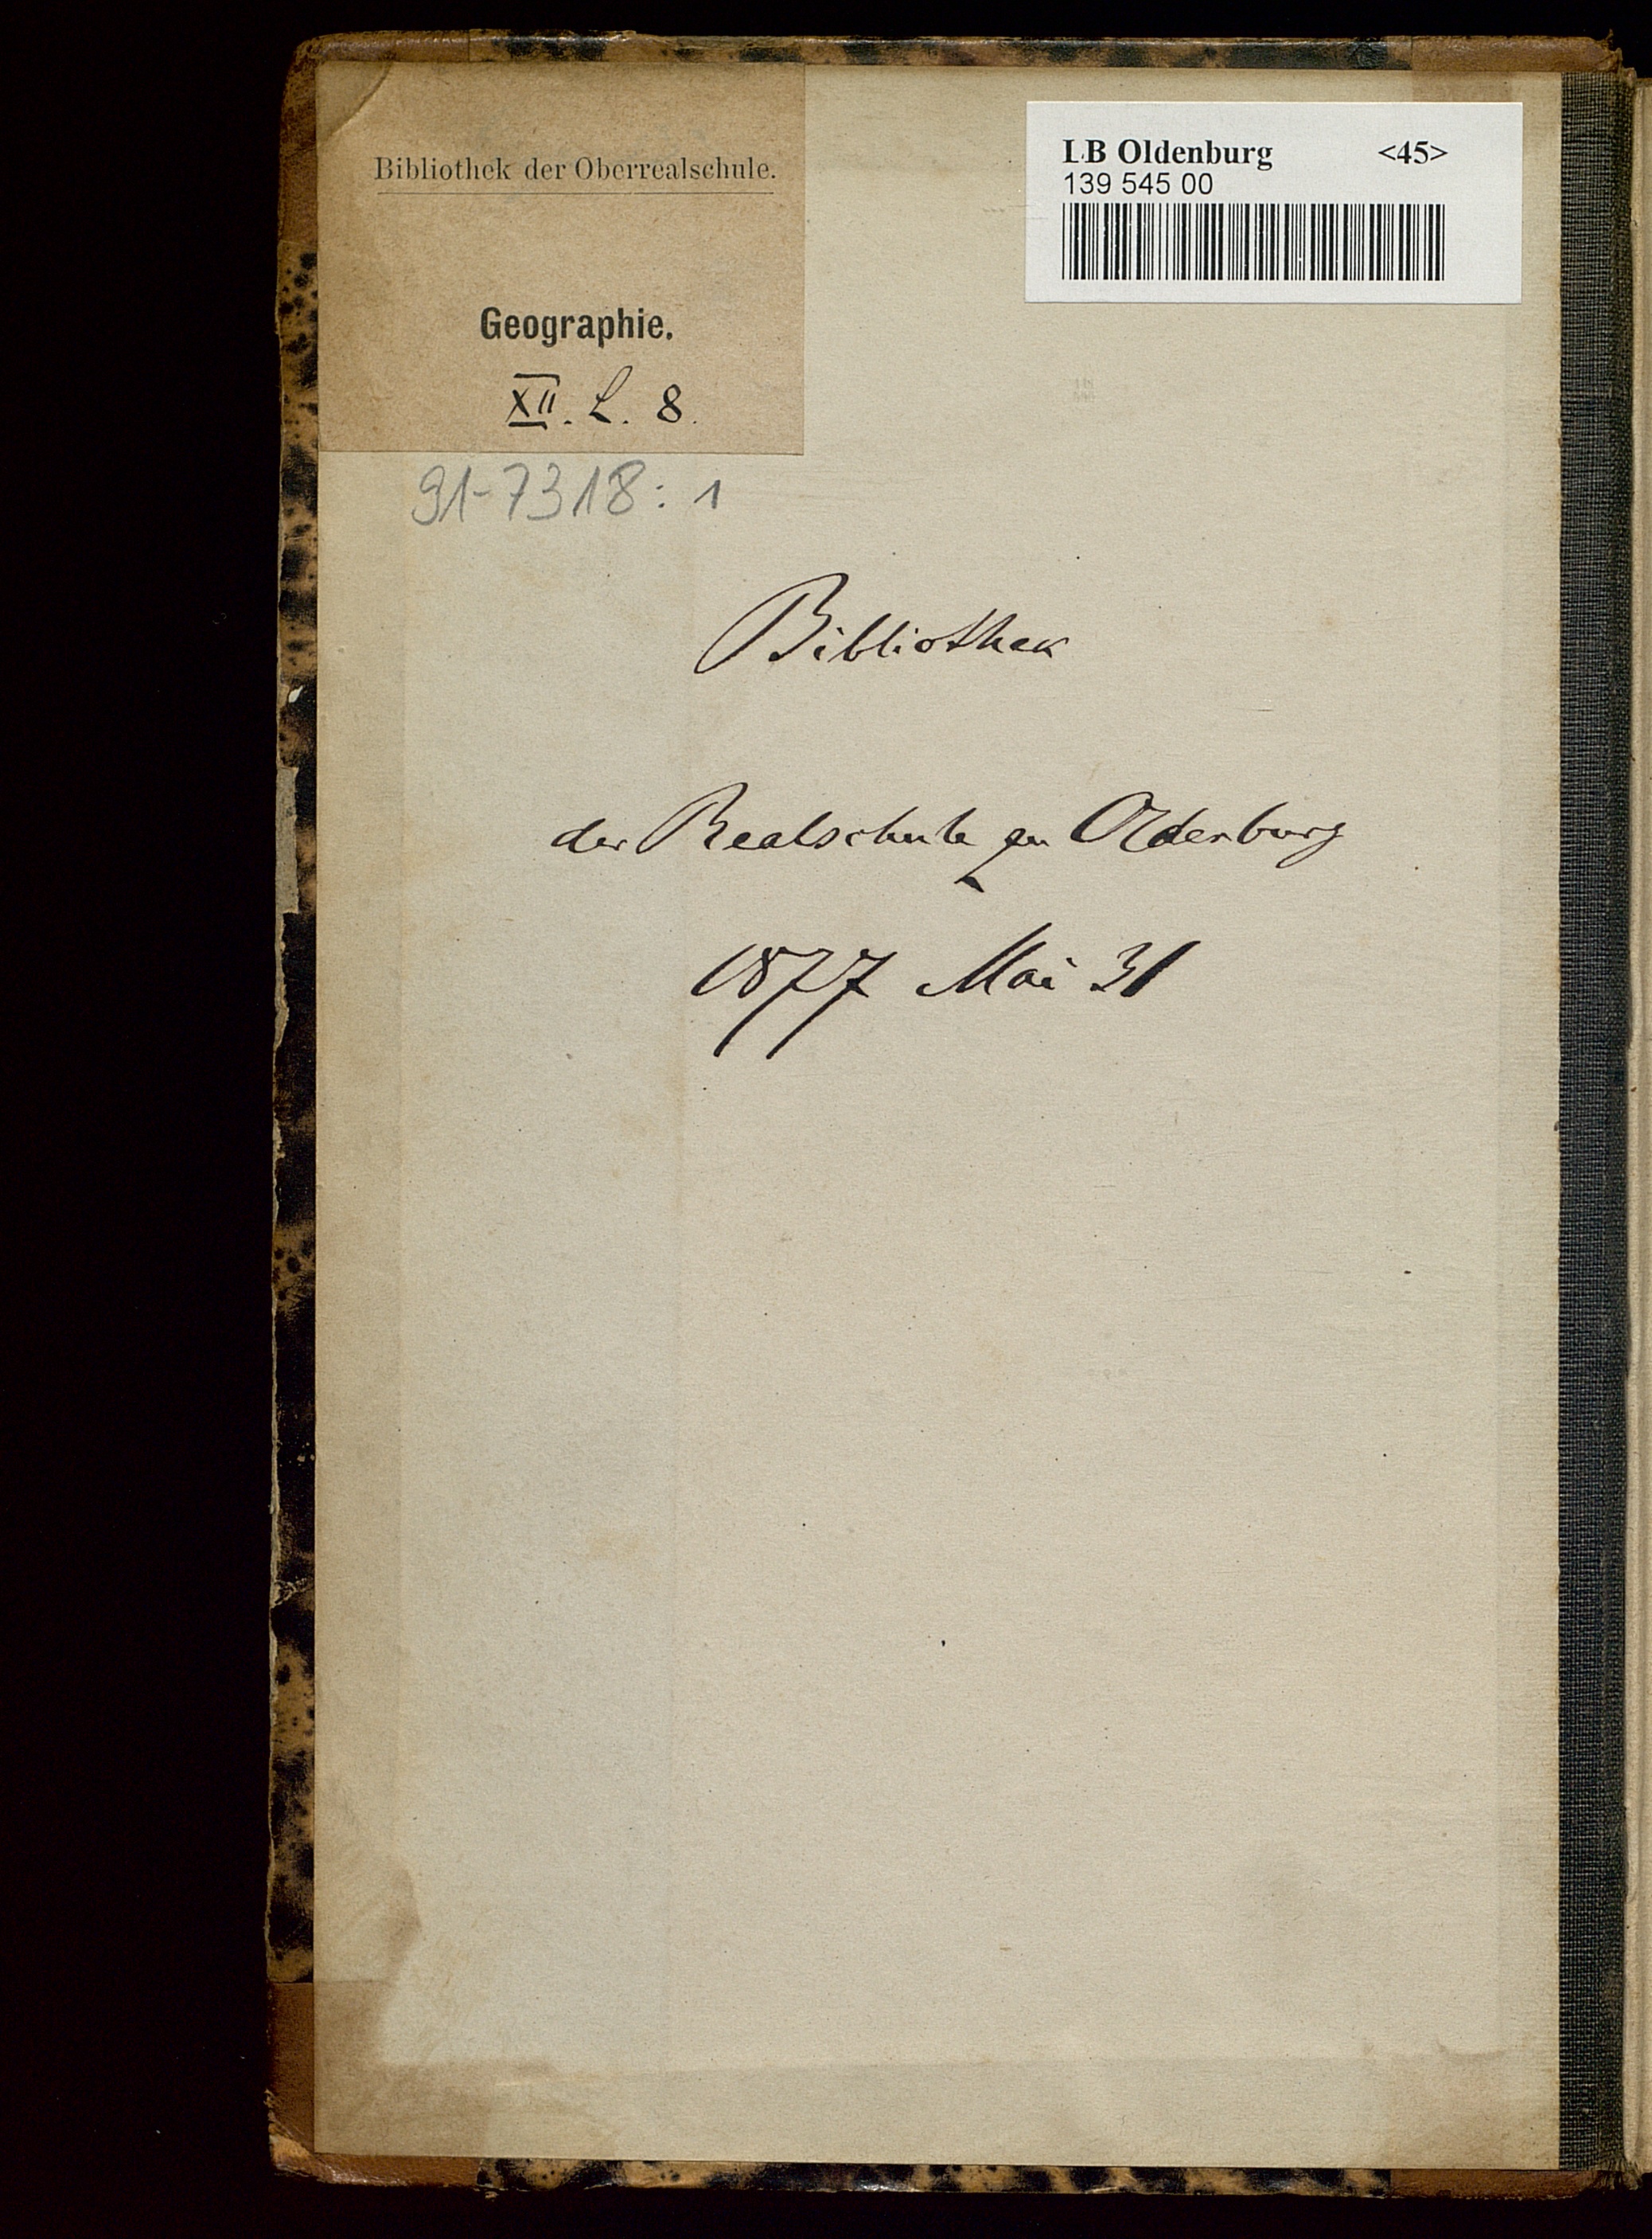 Bibliothek der Oberrealschule.
Geographie.
XII. L. 8.
91-7318: 1
LB Oldenburg <45>
139 545 00
Bibliothek
der Realschule zu Oldenburg
1877 Mai 31